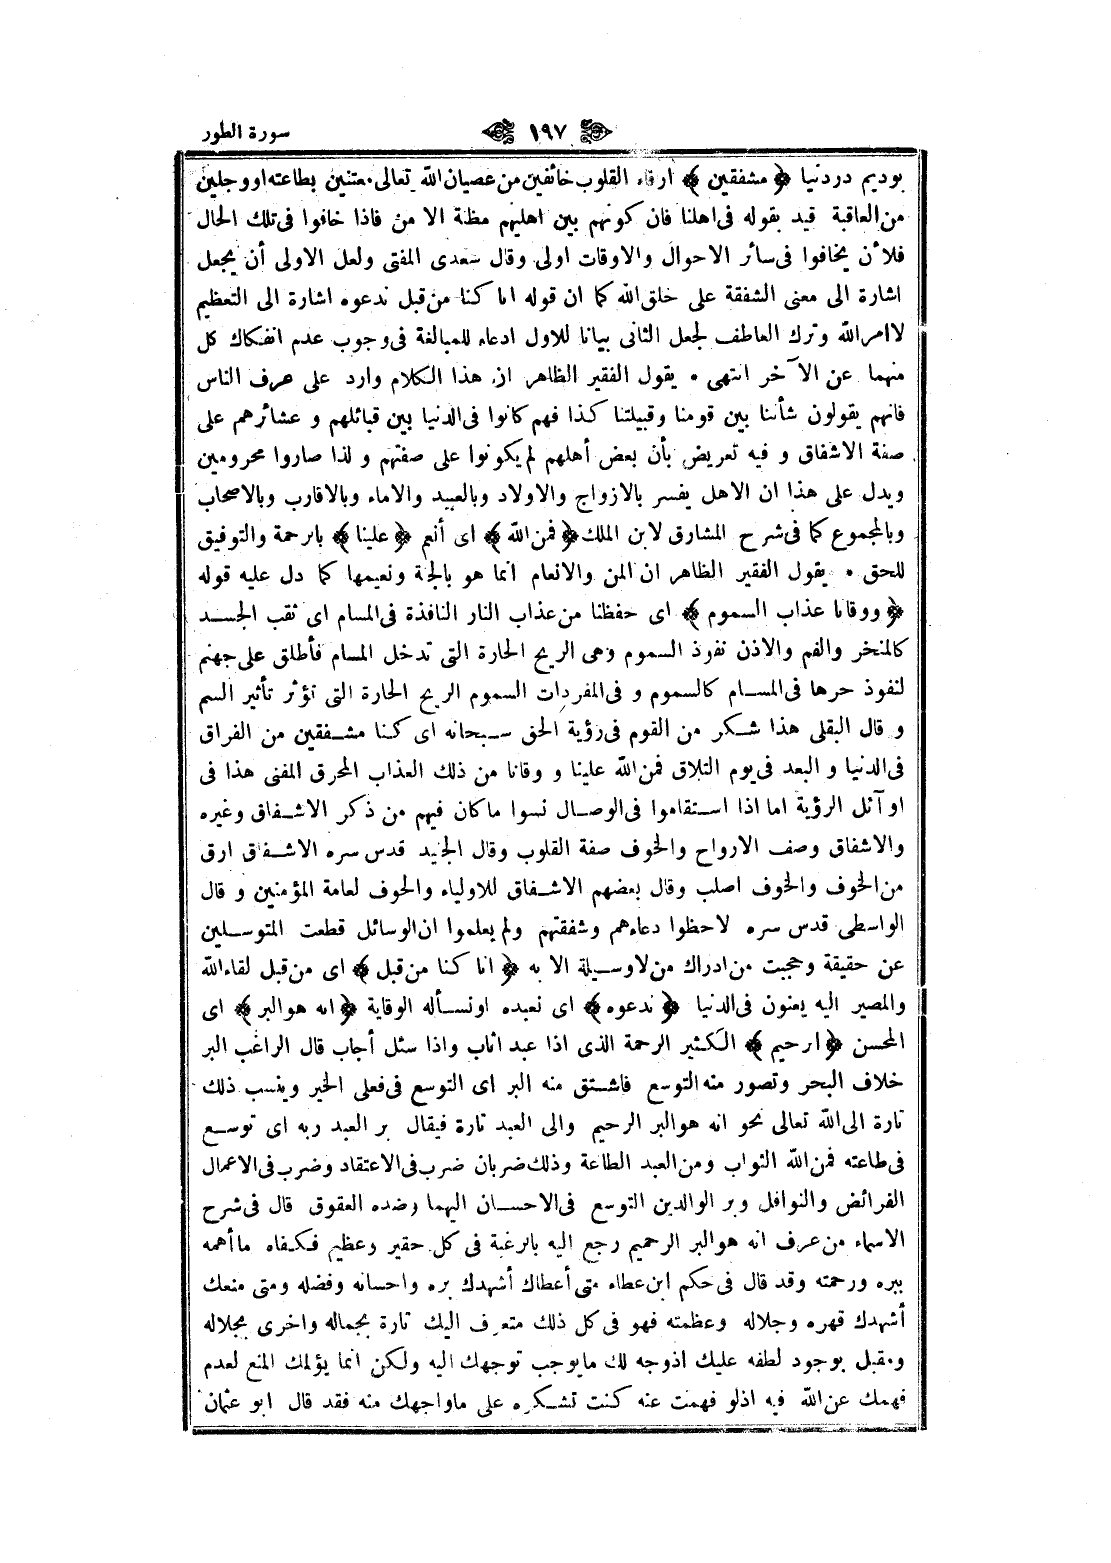 سورة الطور ١٩٧
بوديم دردنيا ﴿ مشفقين ﴾ ارقاء القلوب خائفين من عصيان الله تعالى معتنين بطاعته او وجلين
من العاقبة قيد بقوله فى اهلنا فان كونهم بين اهليهم مظنة الا من فاذا خافوا فى تلك الحال
فلأن يخافوا فى سائر الاحوال والاوقات اولى وقال سعدى المفتى ولعل الاولى أن يجعل
اشارة الى معنى الشفقة على خلق الله كما ان قوله انا كنا من قبل ندعوه اشارة الى التعظيم
لاامر الله وترك العاطف لجعل الثانى بيانا للاول ادعاء للمبالغة فى وجوب عدم انفكاك كل
منهما عن الآخر انتهى • يقول الفقير الظاهر ان هذا الكلام وارد على عرف الناس
فانهم يقولون شأننا بين قومنا وقبيلتنا كذا فهم كانوا فى الدنيا بين قبائلهم و عشائرهم على
صفة الاشفاق و فيه تعريض بأن بعض أهلهم لم يكونوا على صفتهم و لذا صاروا محرومين
ويدل على هذا ان الاهل يفسر بالازواج والاولاد وبالعبيد والاماء وبالاقارب وبالاصحاب
وبالمجموع كما فى شرح المشارق لابن الملك ﴿ فمن الله ﴾ اى أنعم ﴿ علينا ﴾ بالرحمة والتوفيق
للحق • يقول الفقير الظاهر ان المن والانعام انما هو بالجنة ونعيمها كما دل عليه قوله
﴿ ووقانا عذاب السموم ﴾ اى حفظنا من عذاب النار النافذة فى المسام اى ثقب الجسد
كالمنخر والفم والاذن نفوذ السموم وهى الريح الحارة التى تدخل المسام فأطلق على جهنم
لنفوذ حرها فى المسام كالسموم و فى المفردات السموم الريح الحارة التى تؤثر تأثير السم
و قال البقلى هذا شكر من القوم فى رؤية الحق سبحانه اى كنا مشفقين من الفراق
فى الدنيا و البعد فى يوم التلاق فمن الله علينا و وقانا من ذلك العذاب المحرق المفنى هذا فى
اوآئل الرؤية اما اذا استقاموا فى الوصال نسوا ما كان فيهم من ذكر الاشفاق وغيره
والاشفاق وصف الارواح والخوف صفة القلوب وقال الجنيد قدس سره الاشفاق ارق
من الخوف والخوف اصلب وقال بعضهم الاشفاق للاولياء والخوف لعامة المؤمنين و قال
الواسطى قدس سره لاحظوا دعاءهم وشفقتهم ولم يعلموا ان الوسائل قطعت المتوسلين
عن حقيقة وحجبت من ادراك من لاوسيلة الا به ﴿ انا كنا من قبل ﴾ اى من قبل لقاء الله
والمصير اليه يعنون فى الدنيا ﴿ ندعوه ﴾ اى نعبده او نسأله الوقاية ﴿ انه هو البر ﴾ اى
المحسن ﴿ الرحيم ﴾ الكثير الرحمة الذى اذا عبد اثاب واذا سئل أجاب قال الراغب البر
خلاف البحر وتصور منه التوسع فاشتق منه البر اى التوسع فى فعلى الخير وينسب ذلك
تارة الى الله تعالى نحو انه هو البر الرحيم والى العبد تارة فيقال بر العبد ربه اى توسع
فى طاعته فمن الله الثواب ومن العبد الطاعة وذلك ضربان ضرب فى الاعتقاد وضرب فى الاعمال
الفرائض والنوافل وبر الوالدين التوسع فى الاحسان اليهما وضده العقوق قال فى شرح
الاسماء من عرف انه هو البر الرحيم رجع اليه بالرغبة فى كل حقير وعظيم فكفاه ما أهمه
ببره ورحمته وقد قال فى حكم ابن عطاء متى أعطاك أشهدك بره واحسانه وفضله ومتى منعك
أشهدك قهره وجلاله وعظمته فهو فى كل ذلك متعرف اليك تارة بجماله واخرى بجلاله
ومقبل بوجود لطفه عليك اذوجه لك مايوجب توجهك اليه ولكن انما يؤلمك المنع لعدم
فهمك عن الله فيه اذلو فهمت عنه كنت تشكره على ماواجهك منه فقد قال ابو عثمان